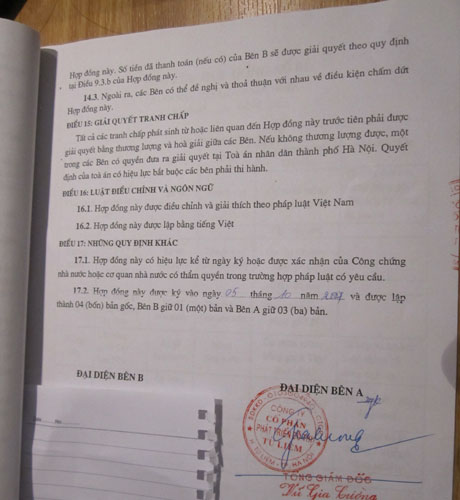 Hợp đồng này. Số tiền đã thanh toán (nếu có) của Bên B sẽ được giải quyết theo quy định
tại Điều 9.3.b của Hợp đồng này.
14.3. Ngoài ra, các Bên có thể đề nghị và thoả thuận với nhau về điều kiện chấm dứt
Hợp đồng này.
ĐIỀU 15: GIẢI QUYẾT TRANH CHẤP
Tất cả các tranh chấp phát sinh từ hoặc liên quan đến Hợp đồng này trước tiên phải được
giải quyết bằng thương lượng và hoà giải giữa các Bên. Nếu không thương lượng được, một
trong các Bên có quyền đưa ra giải quyết tại Toà án nhân dân thành phố Hà Nội. Quyết
định của toà án có hiệu lực bắt buộc các bên phải thi hành.
ĐIỀU 16: LUẬT ĐIỀU CHỈNH VÀ NGÔN NGỮ
16.1. Hợp đồng này được điều chỉnh và giải thích theo pháp luật Việt Nam
16.2. Hợp đồng này được lập bằng tiếng Việt
ĐIỀU 17: NHỮNG QUY ĐỊNH KHÁC
17.1. Hợp đồng này có hiệu lực kể từ ngày ký hoặc được xác nhận của Công chứng
nhà nước hoặc cơ quan nhà nước có thẩm quyền trong trường hợp pháp luật có yêu cầu.
17.2. Hợp đồng này được ký vào ngày 05 tháng 10 năm và được lập
thành 04 (bốn) bản gốc, Bên B giữ 01 (một) bản và Bên A giữ 03 (ba) bản.
ĐẠI DIỆN BÊN B
ĐẠI DIỆN BÊN A
CÔNG TY
CỔ PHẦN
PHÁT TRIỂN
TỪ LIÊM
H. TỪ LIÊM - TP. HÀ NỘI
TỔNG GIÁM ĐỐC
Vũ Gia Cường